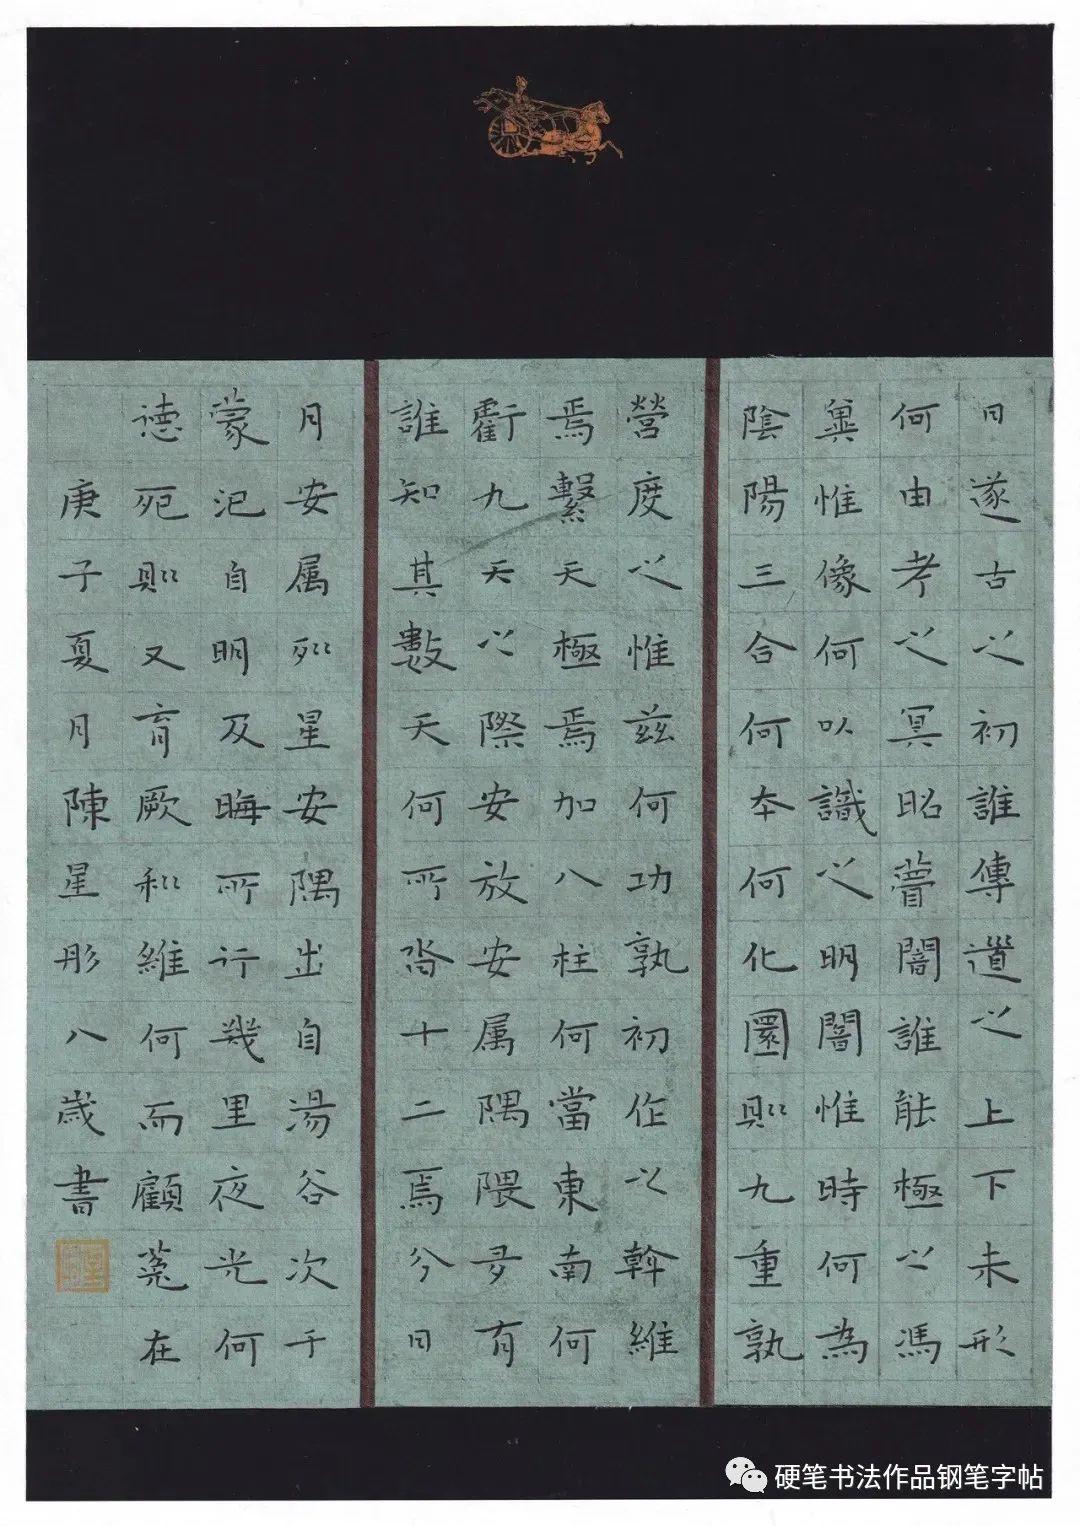 曰遂古之初誰傳道之上下未形
何由考之冥昭瞢闇誰能極之馮
翼惟像何以識之明闇惟時何為
陰陽三合何本何化圜則九重孰
營度之惟茲何功孰初作之斡維
焉繫天極焉加八柱何當東南何
虧九天之際安放安属隅隈多有
誰知其數天何所沓十二焉分日
月安属列星安陳出自湯谷次于
蒙汜自明及晦所行幾里夜光何
德死則又育厥利維何而顧菟在
庚子夏月陳星彤八歲書
硬笔书法作品钢笔字帖